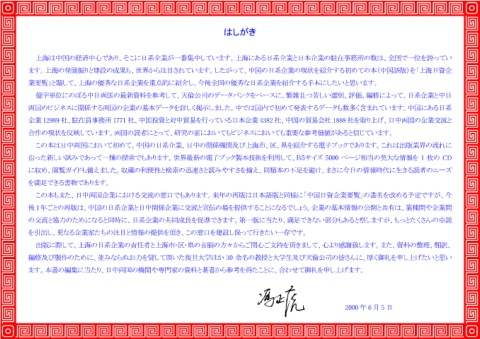 はしがき
上海は中国の経済中心であり、そこに日系企業が一番集中しています。上海にある日系企業と日本企業の駐在事務所の数は、全国で一位を誇ってい
ます。上海の発展振りと建設の成果も、世界から注目されています。したがって、中国の日系企業の現状を紹介する初めての本(中国語版)を「上海日資企
業要覧」と題して、上海の優秀な日系企業を重点的に紹介し、今後全国の優秀な日系企業を紹介する手本にしたいと思います。
億字単位にのぼる中日両国の最新資料を参考して、天倫公司のデータバンクをベースに、繁雑且つ苦しい選別、評価、編修によって、日系企業と中日
両国のビジネスに関係する両国の企業の基本データを詳しく掲示しました。中では国内で初めて発表するデータも数多く含まれています。中国にある日系
企業 12989 社、駐在員事務所 1771 社、中国投資と対中貿易を行っている日本企業 4382 社、中国の貿易会社 1888 社を取り上げ、日中両国の企業交流と
合作の現状を反映しています。両国の読者にとって、研究の面においてもビジネスにおいても重要な参考価値があると信じています。
この本は日中両国において初めて、中国の日系企業、日中の関係機関及び上海市、区、県を紹介する電子ブックであります。これは出版業界の流れに
沿った新しい試みであって一種の探索でもあります。世界最新の電子ブック製本技術を利用して、B5サイズ 5000 ページ相当の莫大な情報を 1 枚の CD
に収め、閲覧ガイドも備えました。収蔵の利便性と検索の迅速さと読みやすさを備え、同類本の不足を避け、まさに今日の情報時代に生きる読者のニーズ
を満足できる書物であります。
この本もまた、日中両国企業における交流の窓口でもあります。来年の再版は日本語版と同様に「中国日資企業要覧」の書名を改める予定ですが、今
後1年ごとの再版は、中国の日系企業と日中関係企業に交流と宣伝の場を提供することになるでしょう。企業の基本情報の公開と共有は、業種間や企業間
の交流と協力のためになると同時に、日系企業の共同成長を促進できます。第一版に当たり、満足できない部分もあると察しますが、もっとたくさんの卓説
を引出し、更なる企業家たちの注目と情報の提供を頂き、この窓口を建設し扱って行きたい一存です。
出版に際して、上海の日系企業の責任者と上海市・区・県の首脳の方々からご関心ご支持を頂きまして、心より感謝致します。また、資料の整理、翻訳、
編修及び製作のために、並みならぬお力を貸して頂いた復旦大学ほか 30 余名の教授と大学生及び天倫公司の皆さんに、厚く御礼を申し上げたいと思い
ます。本選の編集に当たり、日中両国の機関や専門家の資料と著書から参考を得たことに、合わせて御礼を申し上げます。
2000 年 6 月 5 日